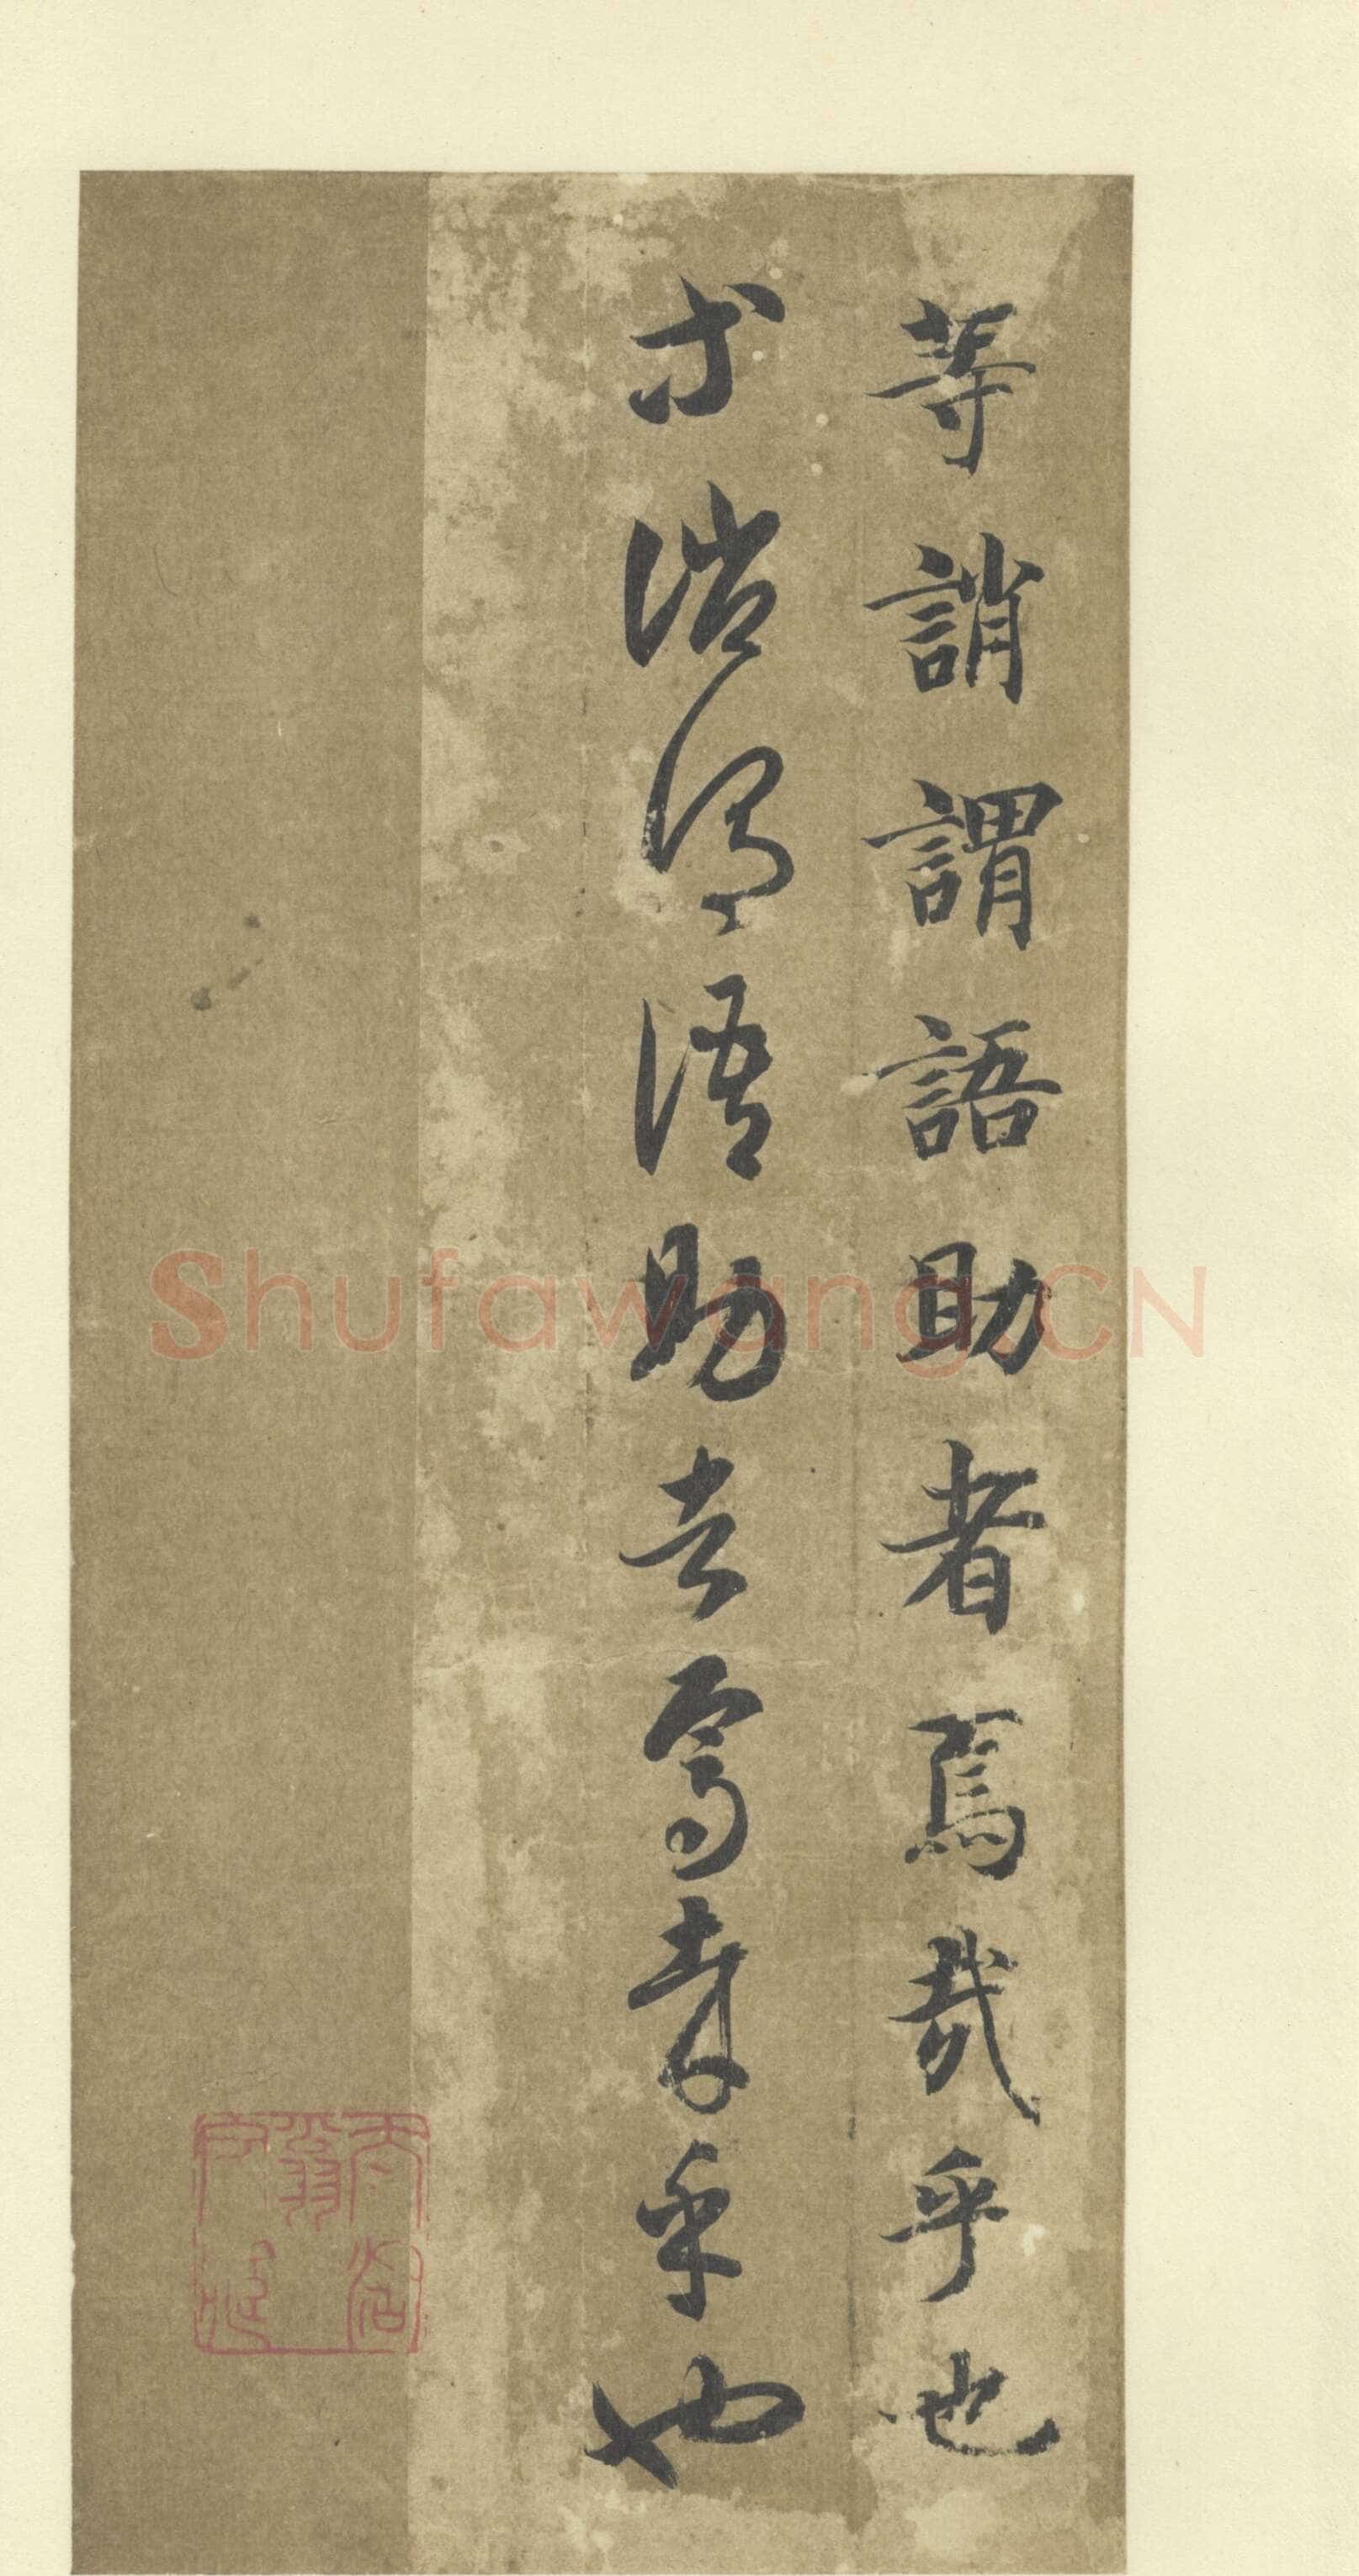 等誚謂語助者焉哉乎也
等誚謂語助者焉哉乎也
Shufawang.CN